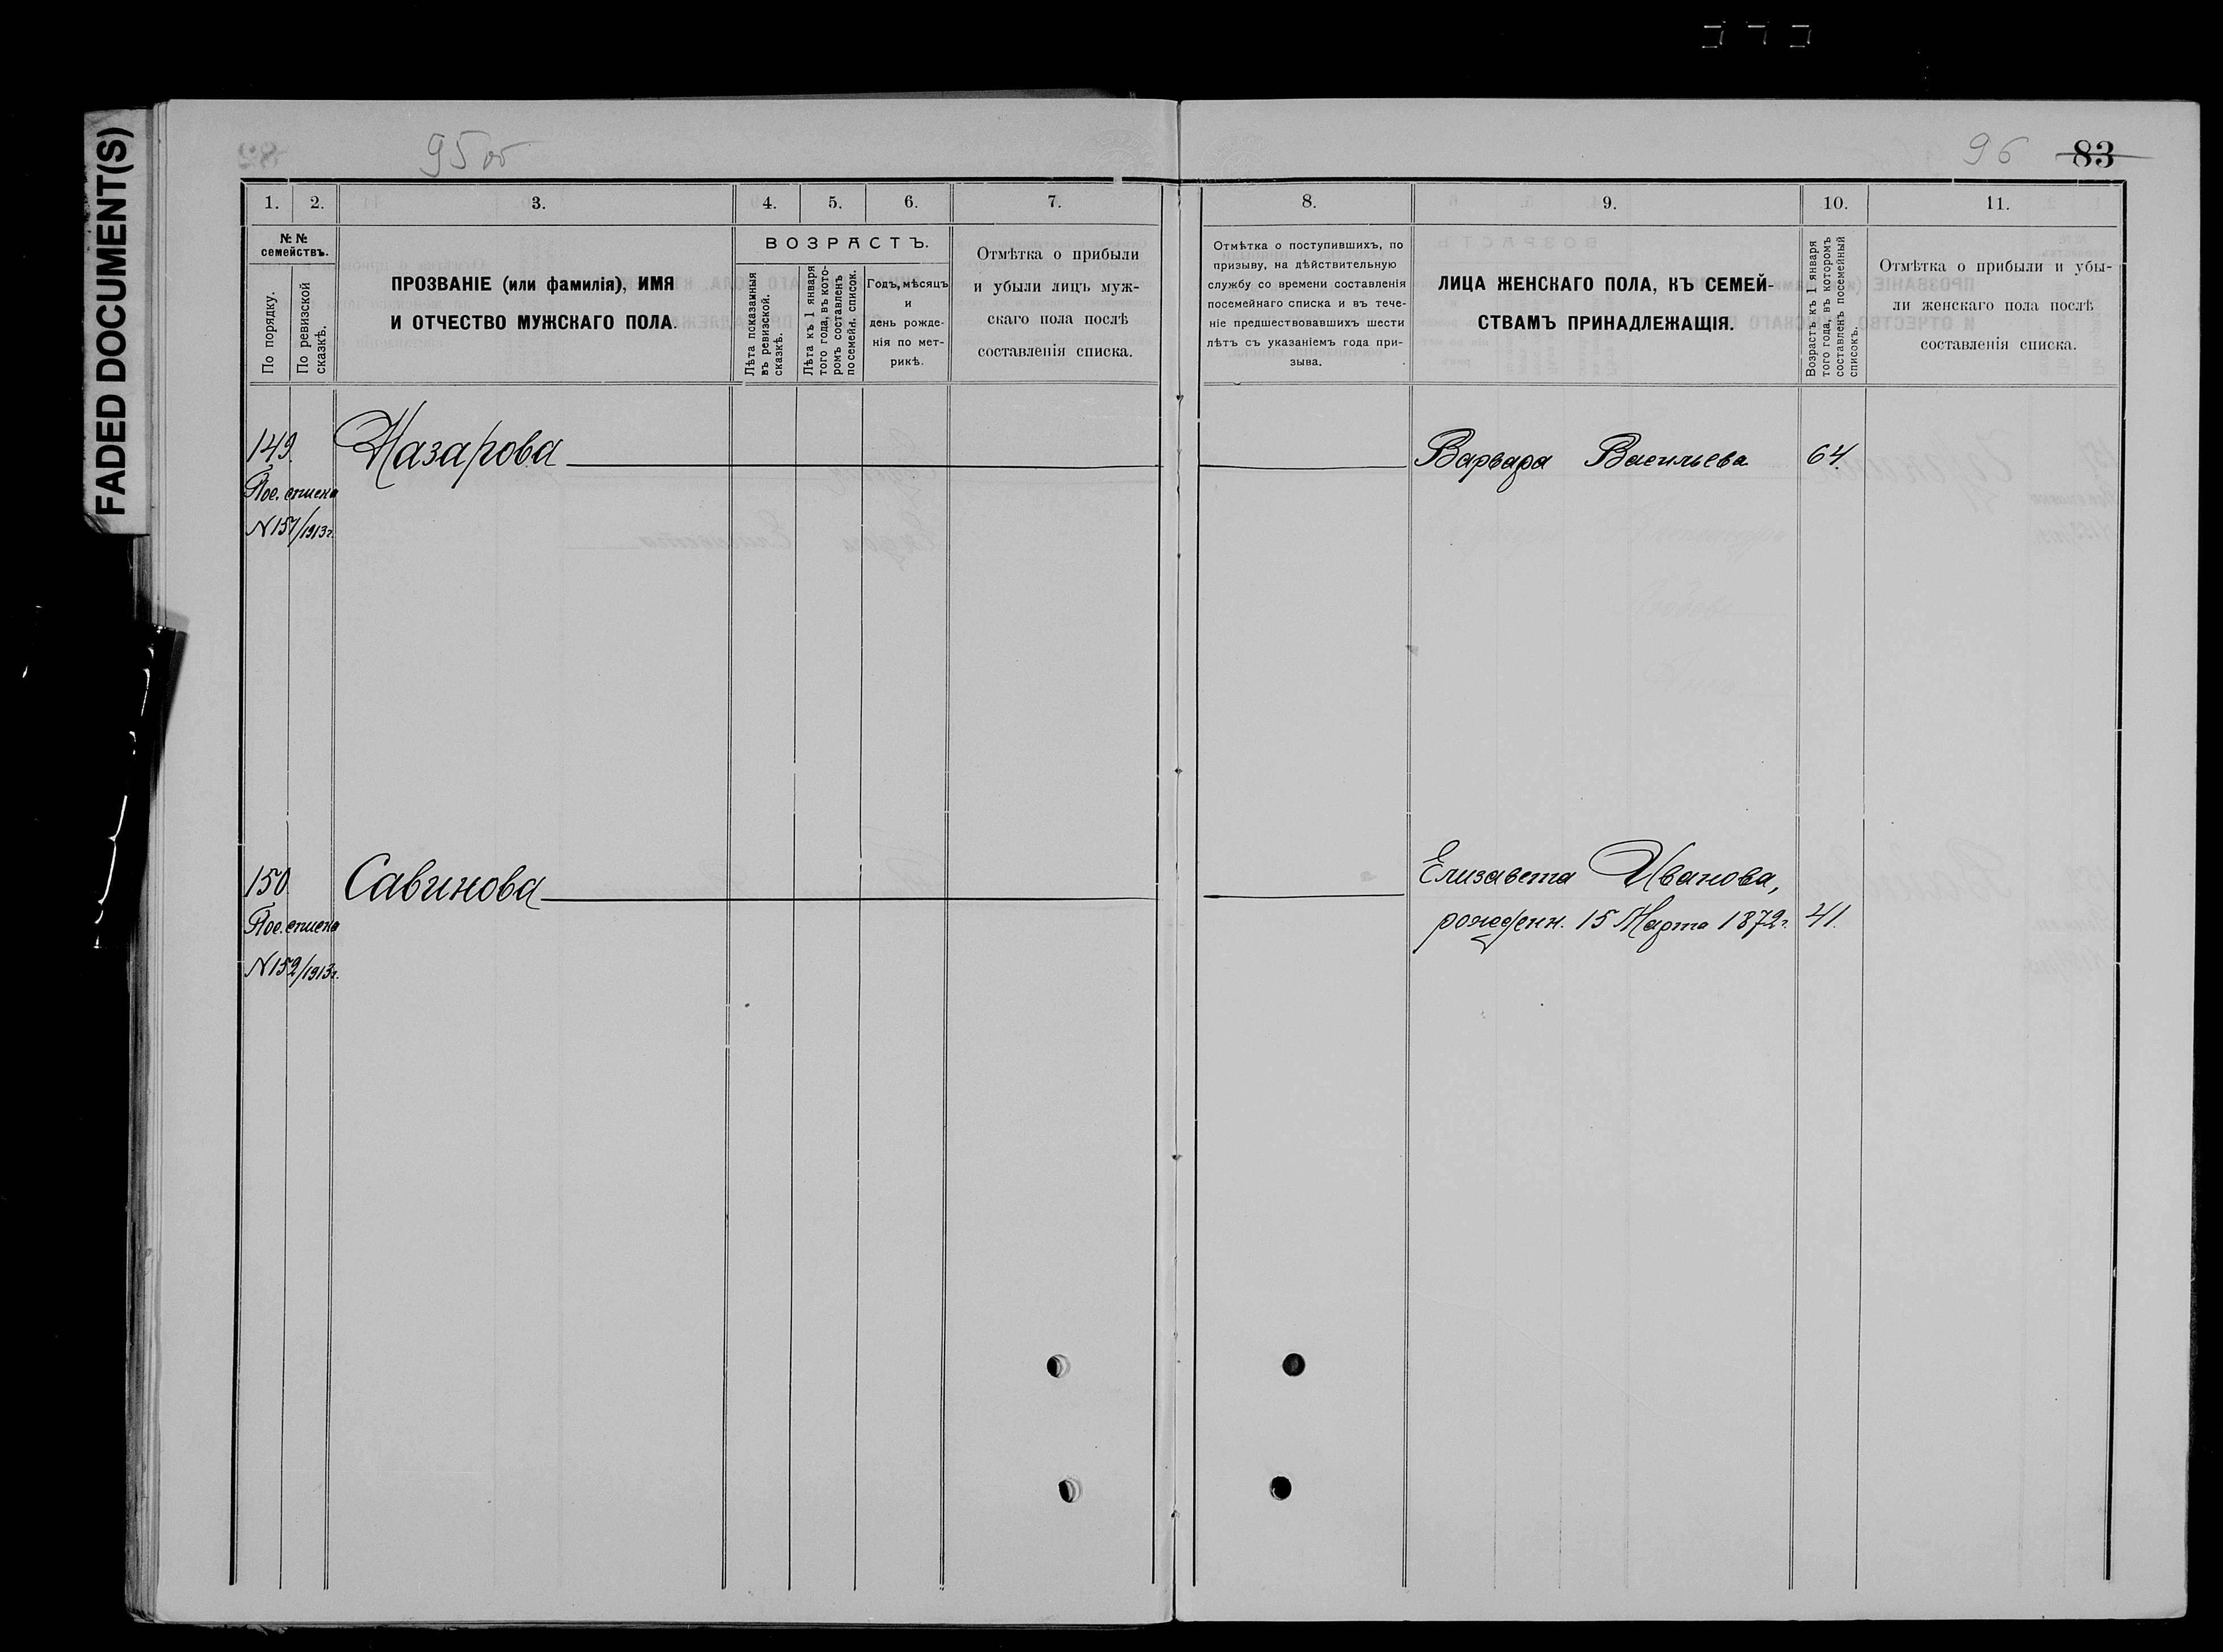 FADED DOCUMENT(S)
95 об
96 83
1. 2. 3. 4. 5. 6. 7.
№ №
семействъ.
По порядку.
По ревизской
сказкѣ.
ПРОЗВАНІЕ (или фамилія), ИМЯ
И ОТЧЕСТВО МУЖСКАГО ПОЛА.
ВОЗРАСТЪ.
Лѣта показанныя
въ ревизской.
сказкѣ.
Лѣта къ 1 января
того года, въ кото-
ромъ составленъ
посемейн. список.
Годъ, мѣсяцъ
и
день рожде-
нія по мет-
рикѣ.
Отмѣтка о прибыли
и убыли лицъ муж-
скаго пола послѣ
составленія списка.
149.
Пос. списка
N 157/1913г.
Назарова
150
Пос. списка
N 159/1913г.
Савинова
8. 9. 10. 11.
Отмѣтка о поступившихъ, по
призыву, на дѣйствительную
службу со времени составленія
посемейнаго списка и въ тече-
ніе предшествовавшихъ шести
лѣтъ съ указаніемъ года при-
зыва.
ЛИЦА ЖЕНСКАГО ПОЛА, КЪ СЕМЕЙ-
СТВАМЪ ПРИНАДЛЕЖАЩІЯ.
Возрастъ къ 1 января
того года, въ которомъ
составленъ посемейный
списокъ.
Отмѣтка о прибыли и убы-
ли женскаго пола послѣ
составленія списка.
Варвара Васильева 64.
Елизавета Иванова,
рожденн. 15 Марта 1872г. 41.